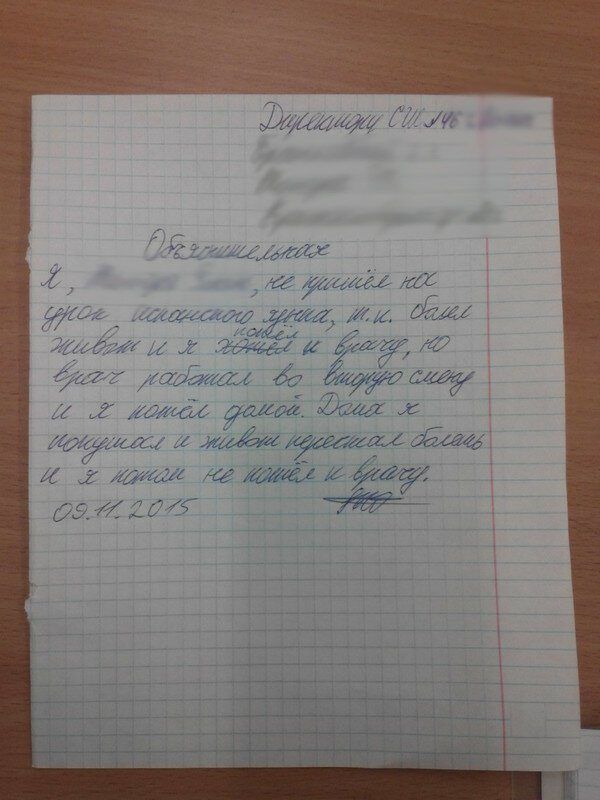 Директору СШ №46
Объяснительная
Я, , не пришёл на
урок испанского языка, т.к. болел
живот и я пошёл к врачу, но
врач работал во вторую смену
и я пошёл домой. Дома я
покушал и живот перестал болеть
и я потом не пошёл к врачу.
09.11.2015